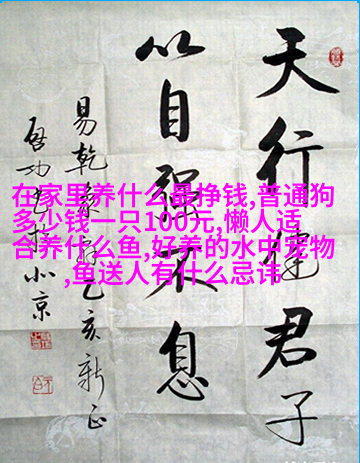 天行健君子
以自强不息
易乾象辞乙亥新正
启功书於北京
在家里养什么最挣钱,普通狗
多少钱一只100元,懒人适
合养什么鱼,好养的水中宠物
,鱼送人有什么忌讳